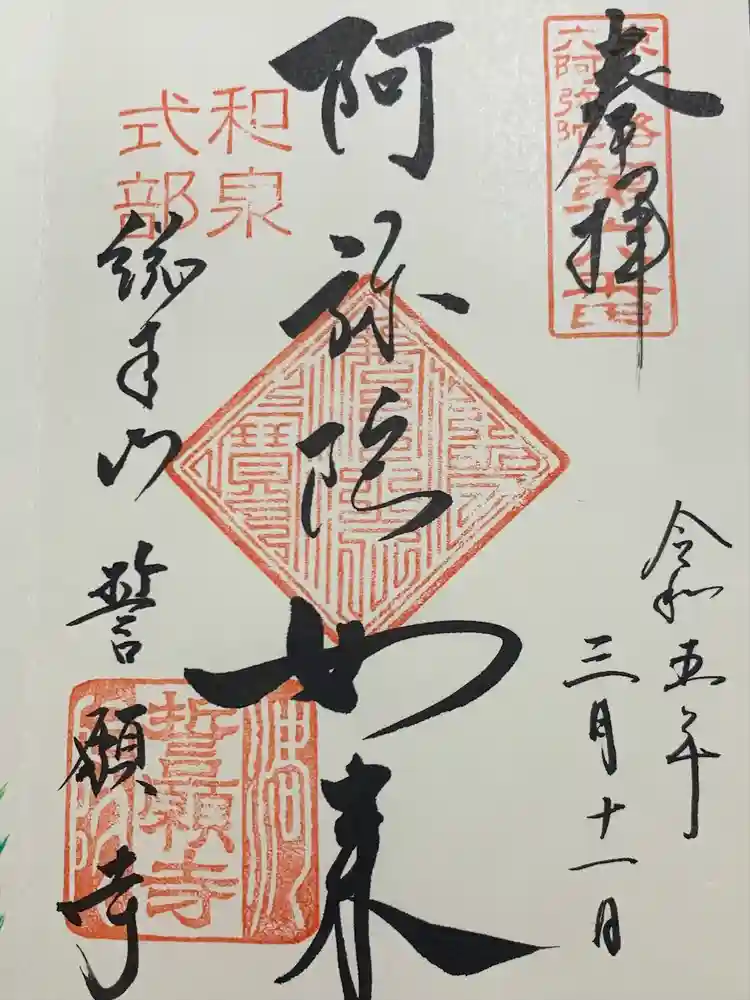 奉拝
京洛
六阿弥陀
令和五年
三月十一日
阿弥陀如来
和泉
式部
総本山 誓願寺
誓願寺